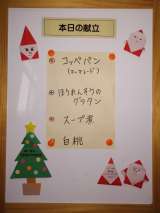 本日の献立
コッペパン
(マーマレード)
ほうれんそうの
グラタン
スープ煮
白桃